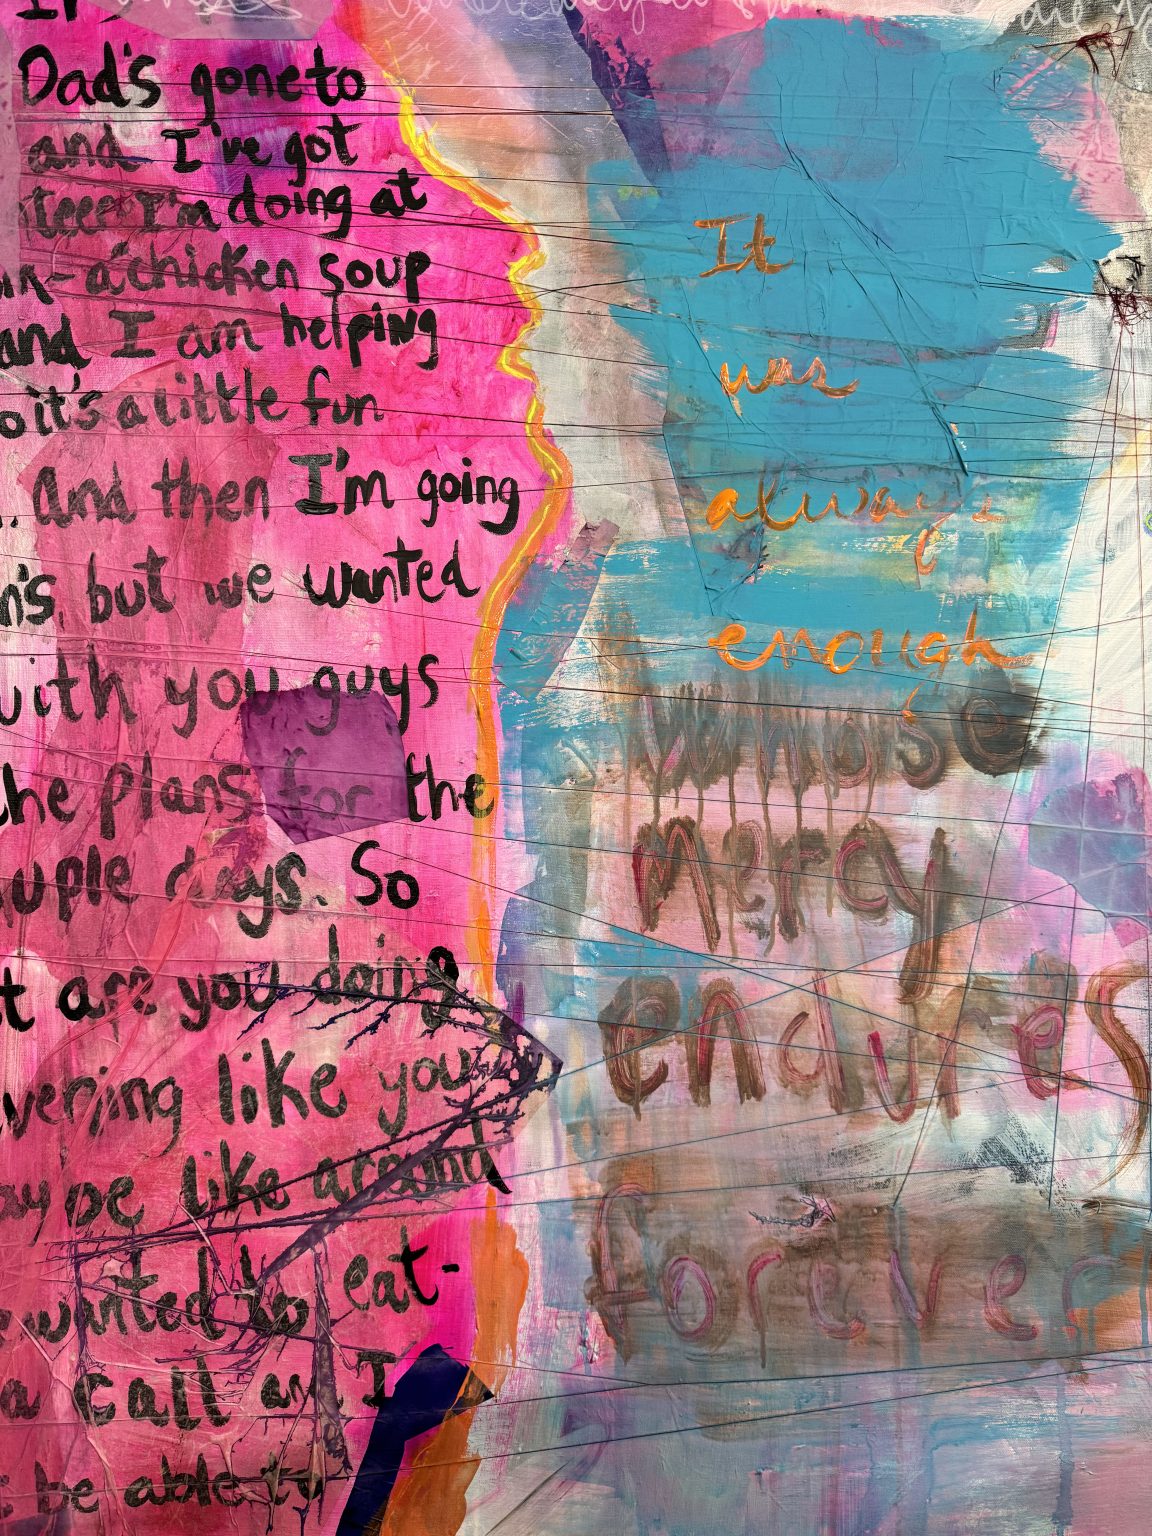 Dad's gone to
and I've got
I'm doing at
a chicken soup
and I am helping
it's a little fun
And then I'm going
but we wanted
with you guys
the plans for the
days. So
are you doing
like you
like around
wanted to eat-
a call and I
be able to
It
was
always
enough
whose
mercy
endures
forever